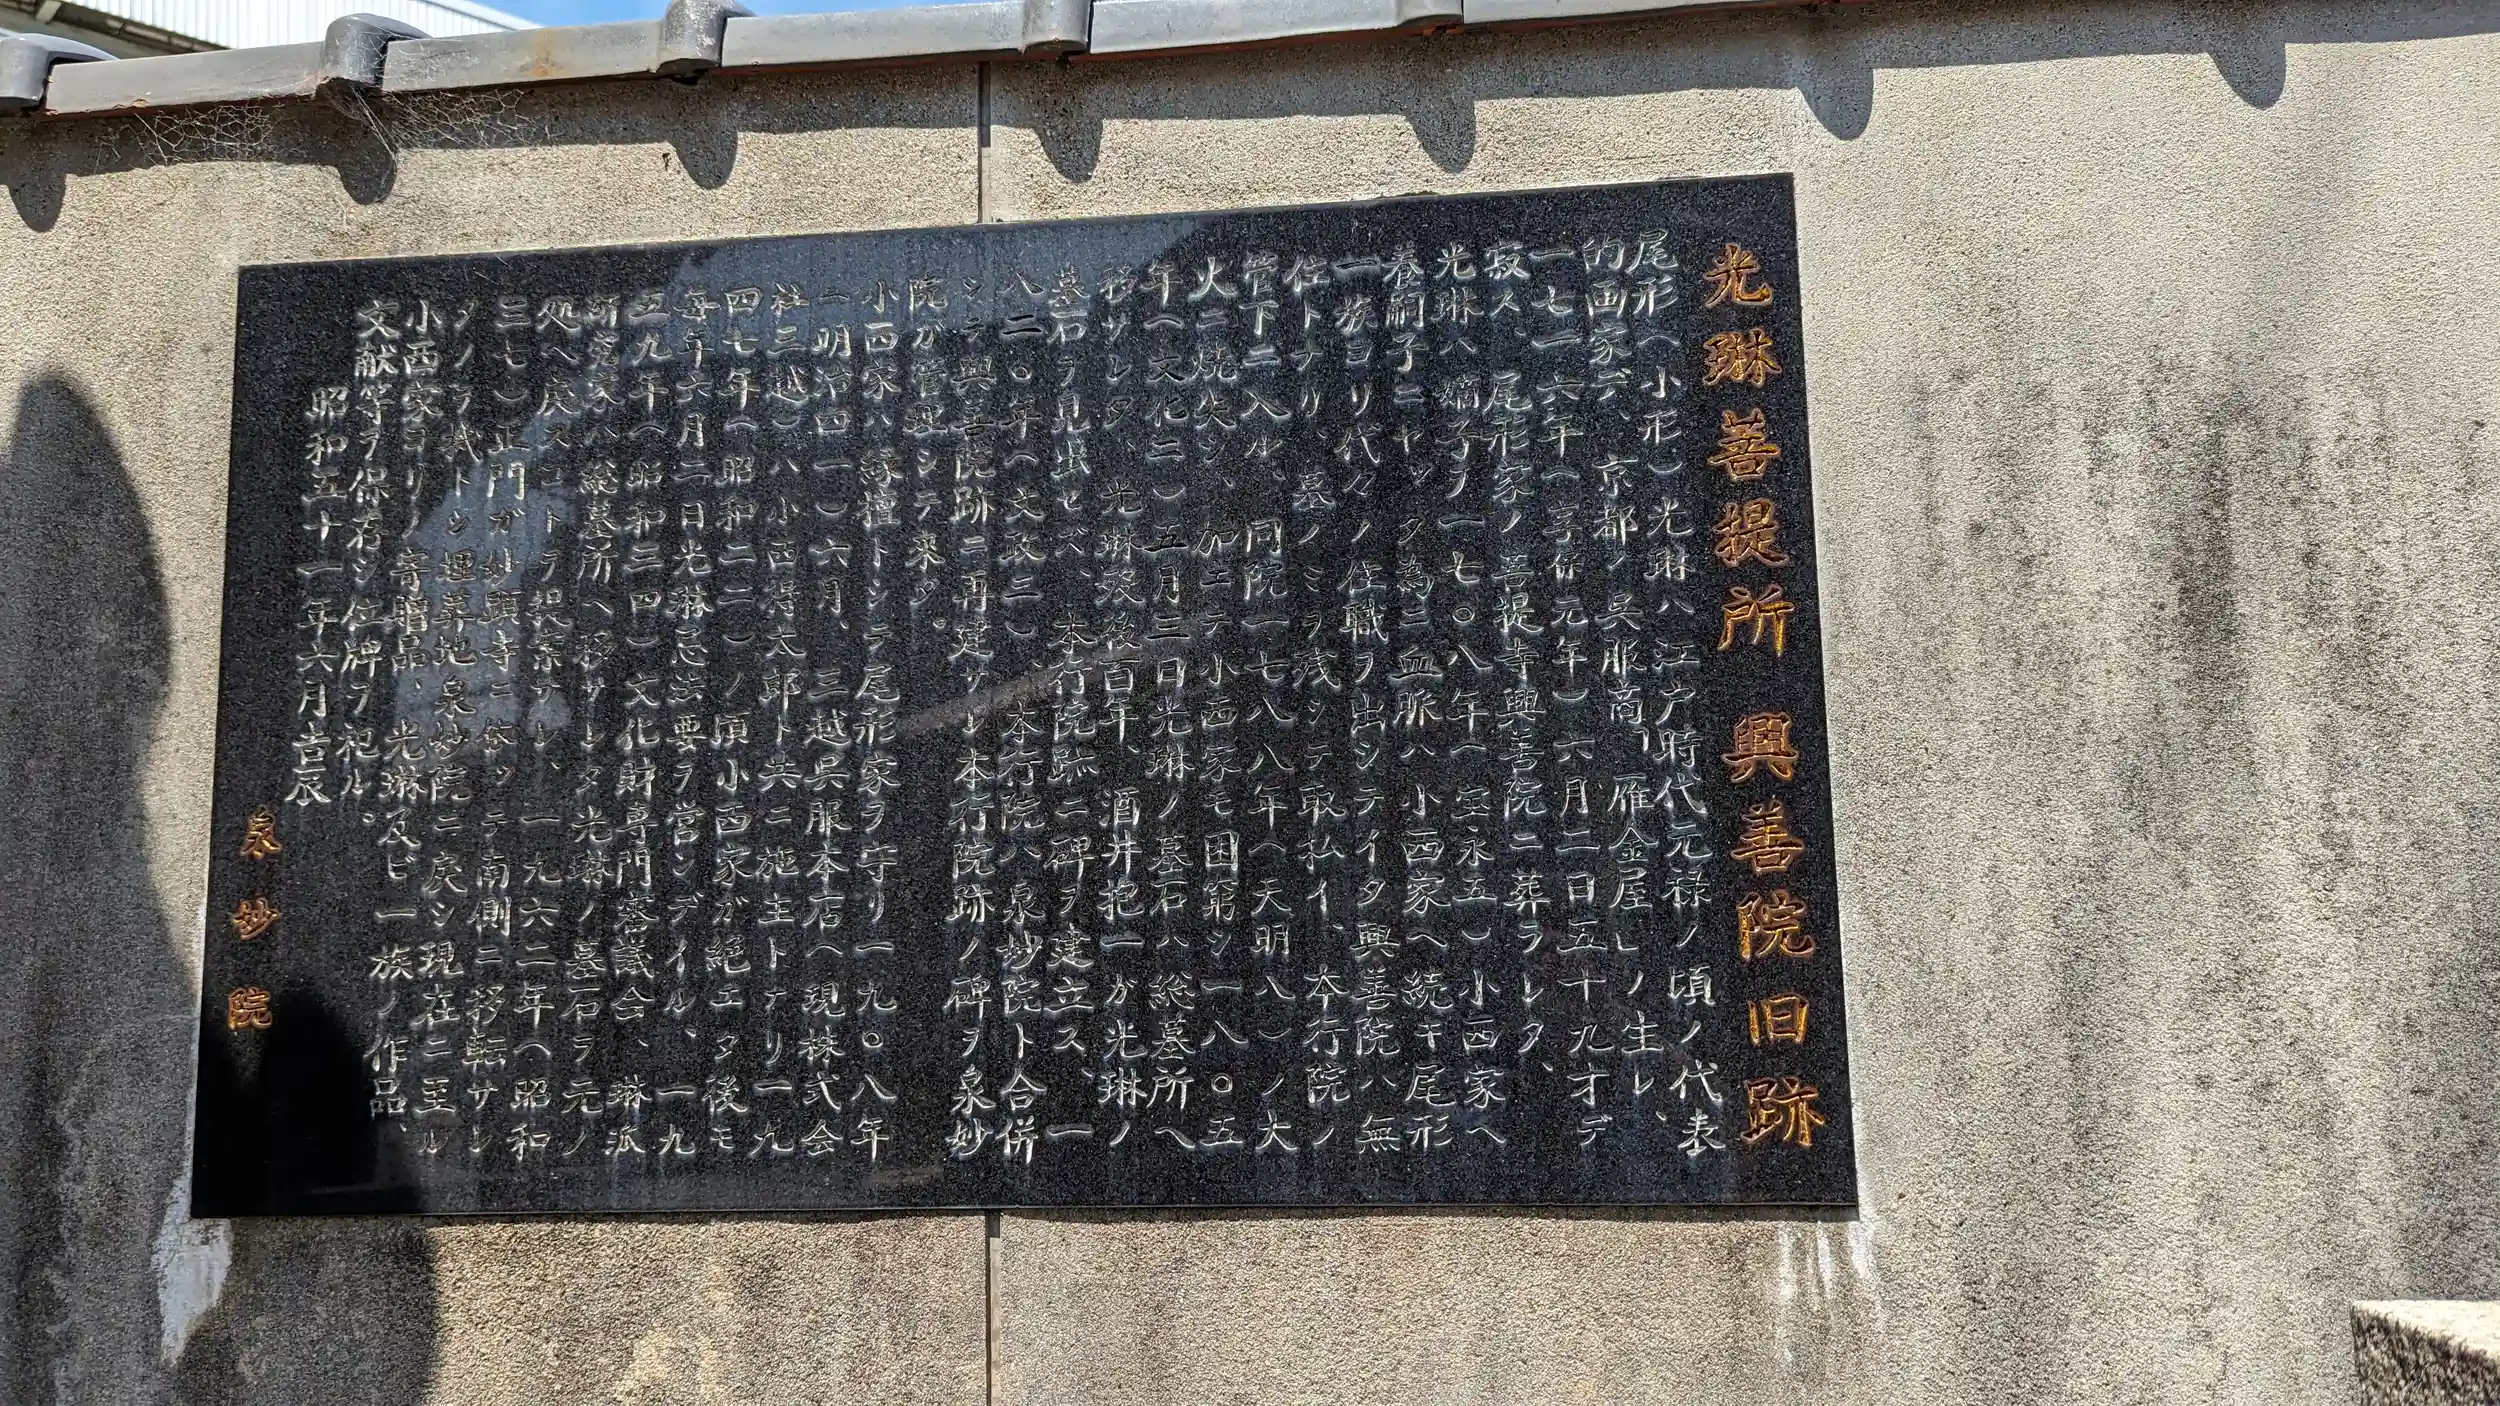 光琳菩提所 興善院旧跡
尾形(小形)光琳ハ江戸時代元禄ノ頃ノ代表
的画家デ、京都ノ呉服商「雁金屋」ノ生レ、
一七一六年(享保元年)六月二日五十九才デ
寂ス、尾形家ノ菩提寺興善院ニ葬ラレタ、
光琳ハ嫡子ヲ一七〇八年(宝永五)小西家ヘ
養嗣子ニヤッタ為ニ血脈ハ小西家ヘ続キ尾形
一族ヨリ代々ノ住職ヲ出シテイタ興善院ハ無
住トナリ、墓ノミヲ残シテ取払イ、本行院ノ
管下ニ入ル、同院一七八八年(天明八)ノ大
火ニ焼失シ、加エテ小西家モ困窮シ一八〇五
年(文化二)五月三日光琳ノ墓石ハ総墓所ヘ
移サレタ、光琳歿後百年、酒井抱一ガ光琳ノ
墓石ヲ見出セズ、本行院跡ニ碑ヲ建立ス、一
八二〇年(文政二)、本行院ハ泉妙院ト合併
シテ興善院跡ニ再建サレ本行院跡ノ碑ヲ泉妙
院ガ管理シテ来タ。
小西家ハ縁檀トシテ尾形家ヲ守リ一九〇八年
(明治四一)六月、三越呉服本店(現株式会
社三越)ハ小西得太郎ト共ニ施主トナリ一九
四七年(昭和二二)ノ頃小西家ガ絶エタ後モ
毎年六月二日光琳忌法要ヲ営ンデイル、一九
五九年(昭和三四)文化財専門審議会、琳派
研究家ハ総墓所ヘ移サレタ光琳ノ墓石ヲ元ノ
処ヘ戻スコトヲ提案サレ、一九六二年(昭和
三七)正門ガ妙顕寺ニ依ッテ南側ニ移転サレ
タノヲ機トシ埋葬地泉妙院ニ戻シ現在ニ至ル
小西家ヨリノ寄贈品、光琳及ビ一族ノ作品、
文献等ヲ保存シ位牌ヲ祀ル。
昭和五十一年六月吉辰
泉妙院